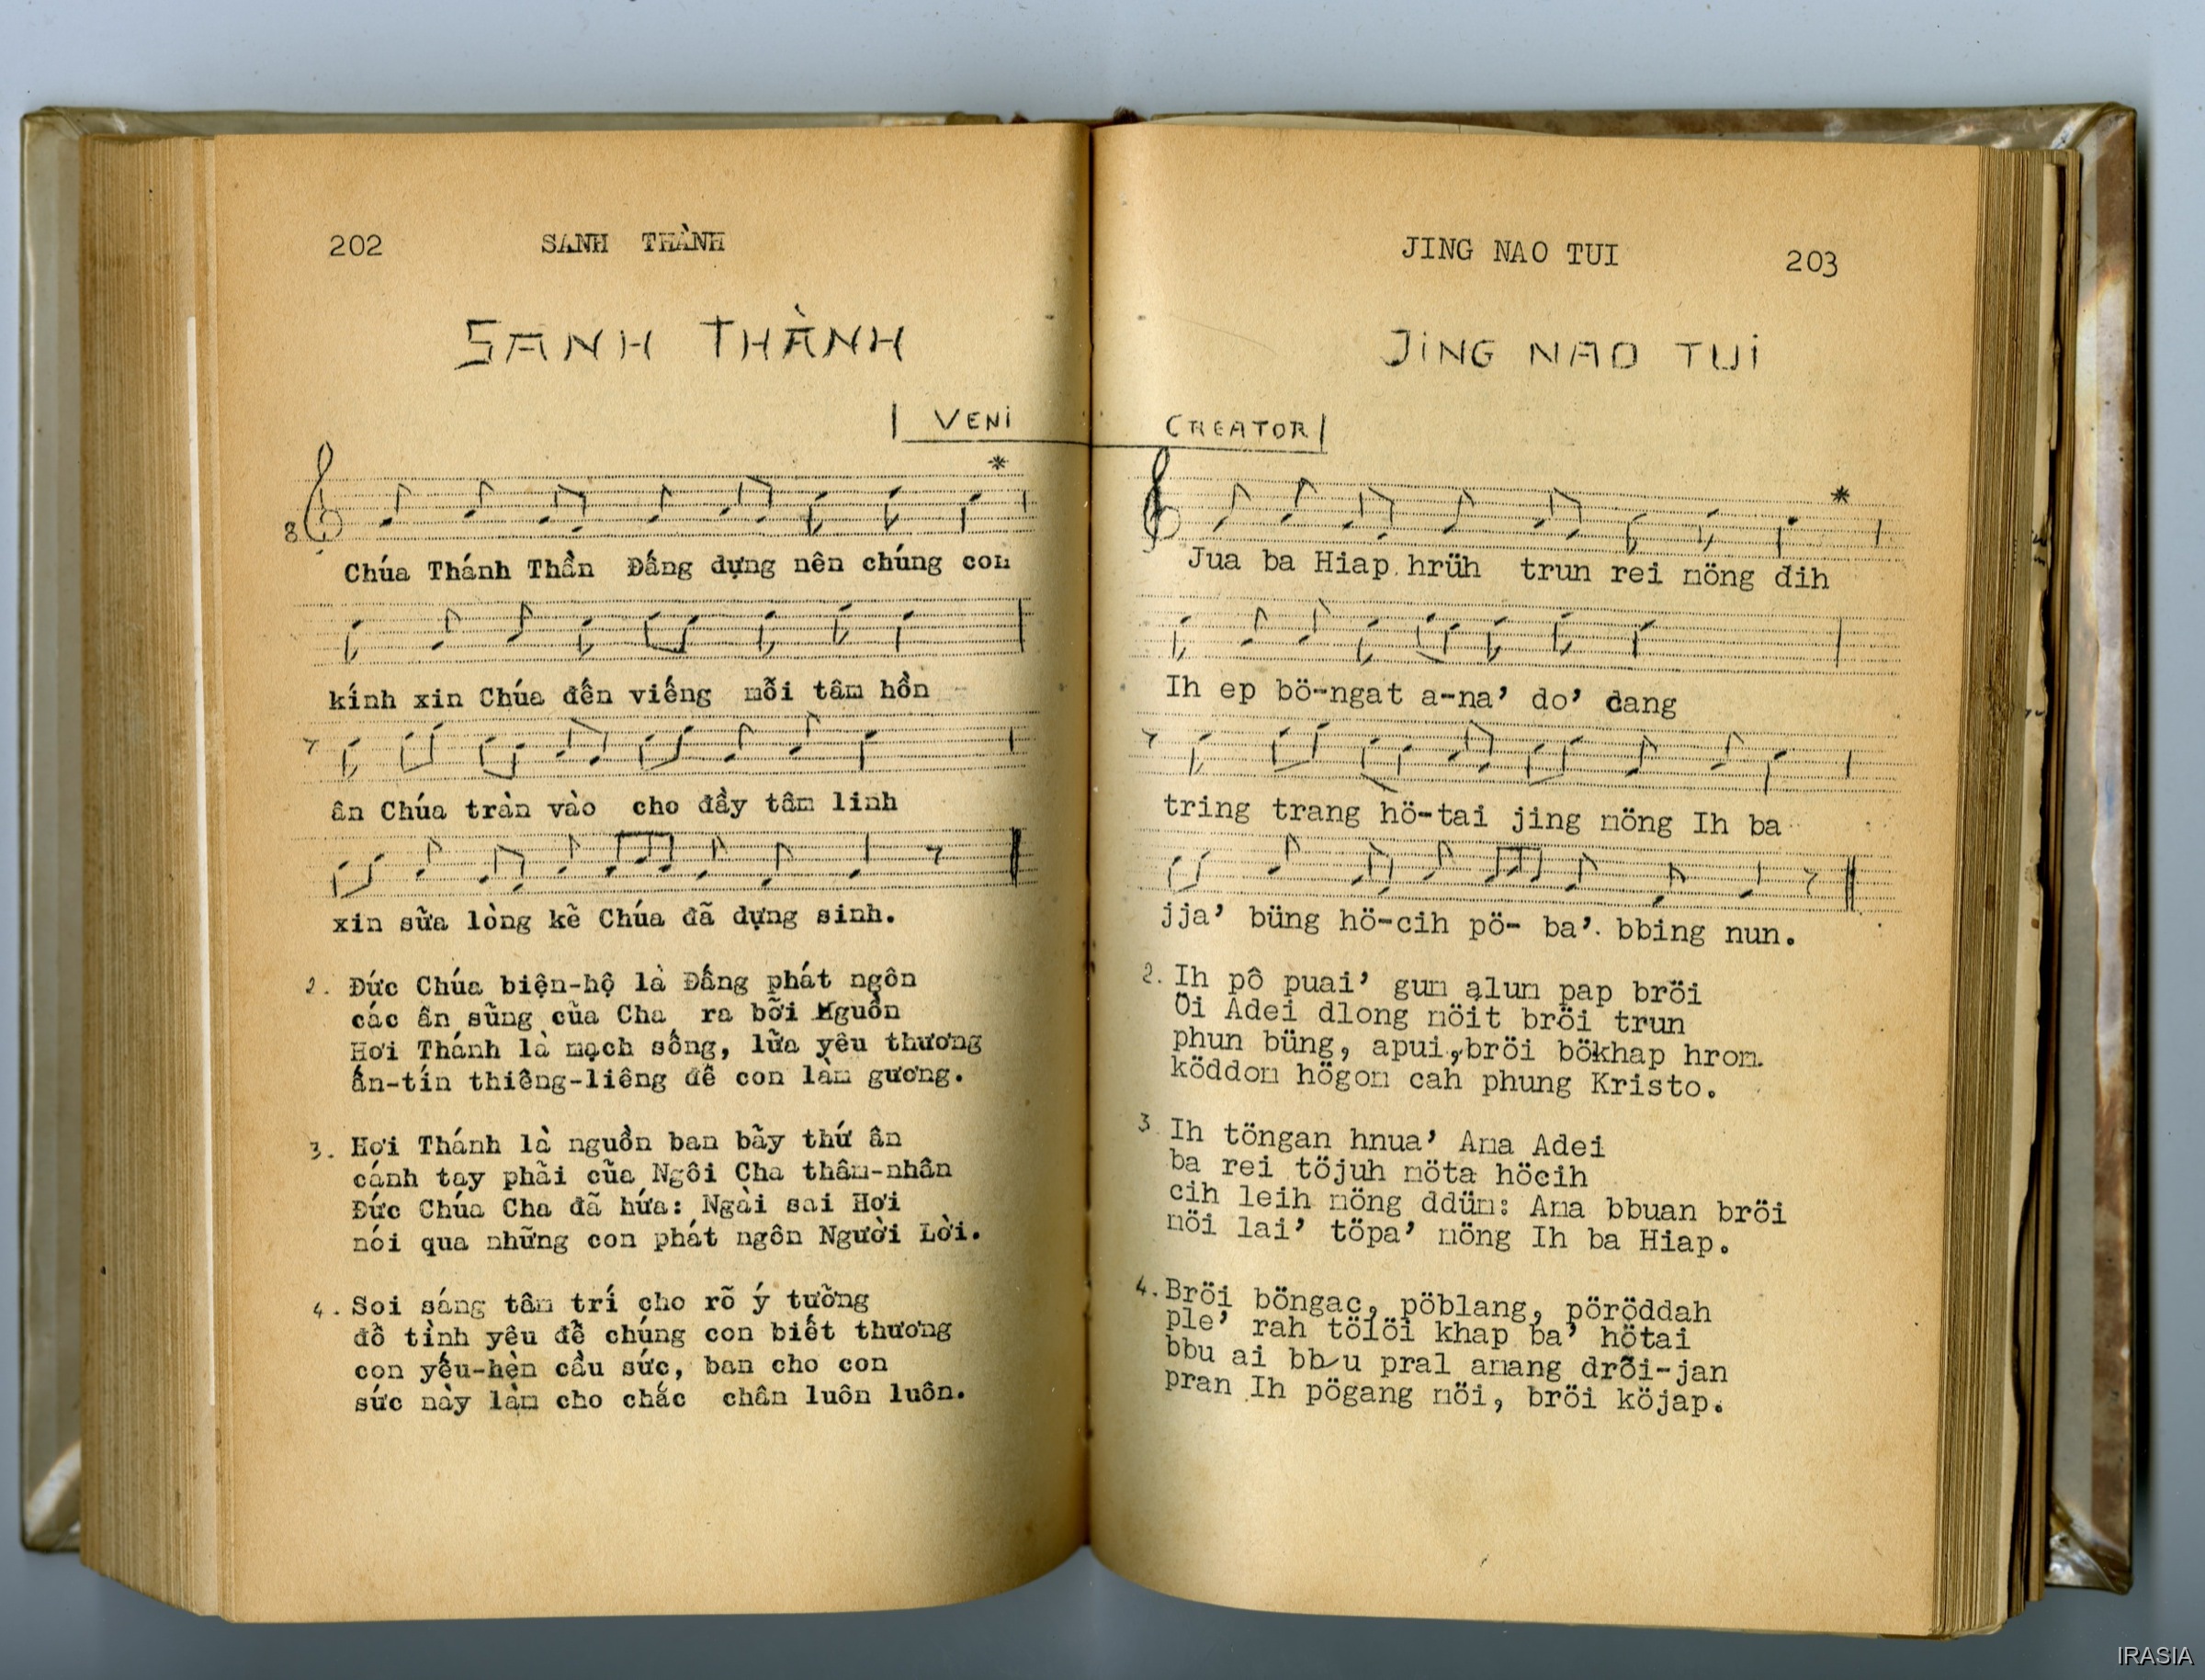 202 SANH THÀNH
SANH THÀNH
VENI
8
*
Chúa Thánh Thần Đấng dựng nên chúng con
kính xin Chúa đến viếng mỗi tâm hồn
ân Chúa tràn vào cho đầy tâm linh
xin sữa lòng kẽ Chúa đã dựng sinh.
2. Đức Chúa biện-hộ là Đấng phát ngôn
các ân sũng cũa Cha ra bỡi Nguồn
Hơi Thánh là mạch sống, lữa yêu thương
ấn-tín thiêng-liêng để con làm gương.
3. Hơi Thánh là nguồn ban bãy thứ ân
cánh tay phãi cũa Ngôi Cha thâm-nhân
Đức Chúa Cha đã hứa: Ngài sai Hơi
nói qua những con phát ngôn Người Lời.
4. Soi sáng tâm trí cho rõ ý tưỡng
đỗ tình yêu để chúng con biết thương
con yếu-hèn cầu sức, ban cho con
sức này làm cho chắc chân luôn luôn.
JING NAO TUI 203
JING NAO TUI
CREATOR
*
Jua ba Hiap hrüh trun rei möng đih
Ih ep bö-ngat a-na' do' dang
tring trang hö-tai jing möng Ih ba
jja' büng hö-cih pö- ba' bbing nun.
2. Ih pô puai' gum alum pap bröi
Öi Adei dlong möit bröi trun
phun büng, apui, bröi bökhap hrom.
köddom högom cah phung Kristo.
3. Ih töngan hnua' Ama Adei
ba rei töjuh möta höcih
cih leih möng ddüm: Ama bbuan bröi
möi lai' töpa' möng Ih ba Hiap.
4. Bröi böngac, pöblang, pöröddah
ple' rah tölöi khap ba' hötai
bbu ai bbu pral amang dröi-jan
pran Ih pögang möi, bröi köjap.
IRASIA